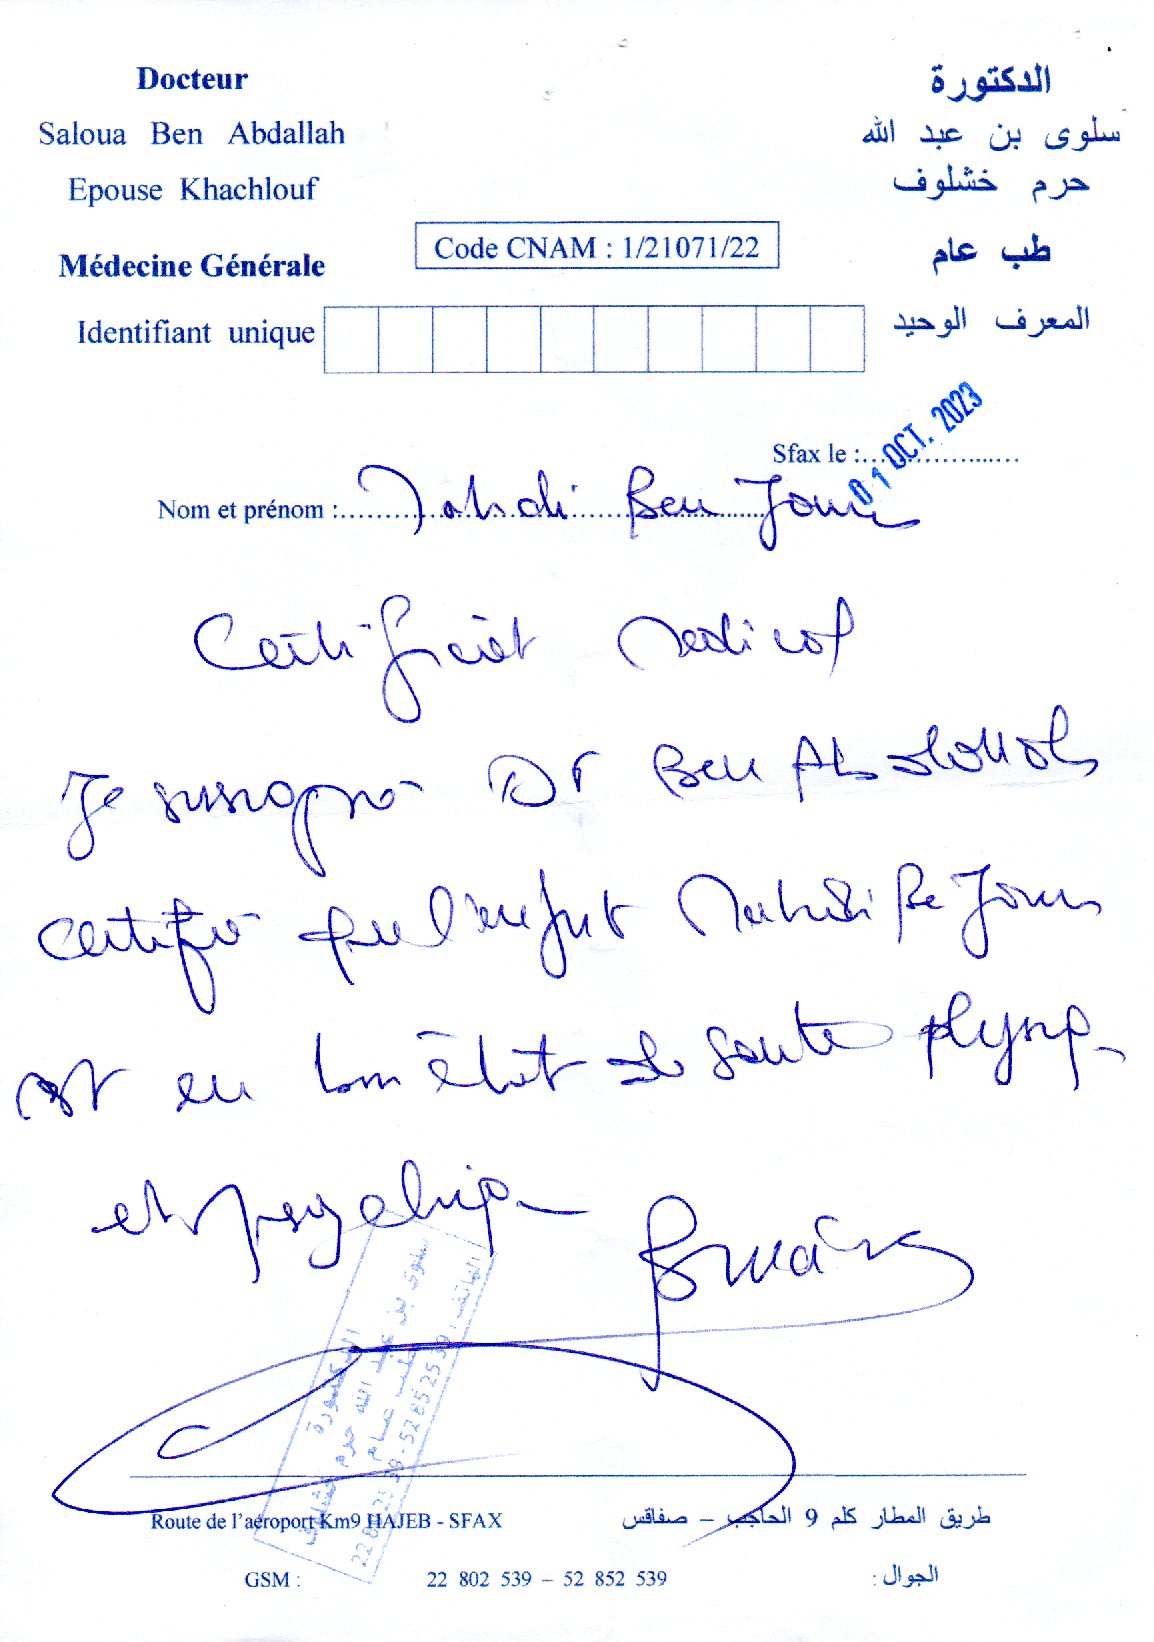 Docteur
الدكتورة
Saloua Ben Abdallah
سلوى بن عبد الله
Epouse Khachlouf
حرم خشلوف
Médecine Générale
Code CNAM : 1/21071/22
طب عام
Identifiant unique
المعرف الوحيد
Sfax le : 01 OCT. 2023
Nom et prénom : Mahdi Ben
Certificat Medical
Je soussigné Dr Ben Abdallah
certifie que l'enfant Mahdi Be
est en bon état de santé physiq
et psychiq
الدكتورة
سلوى بن عبد الله حرم خشلوف
طب عام
Route de l'aéroport Km9 HAJEB - SFAX
طريق المطار كلم 9 الحاجب – صفاقس
GSM : 22 802 539 – 52 852 539 الجوال :